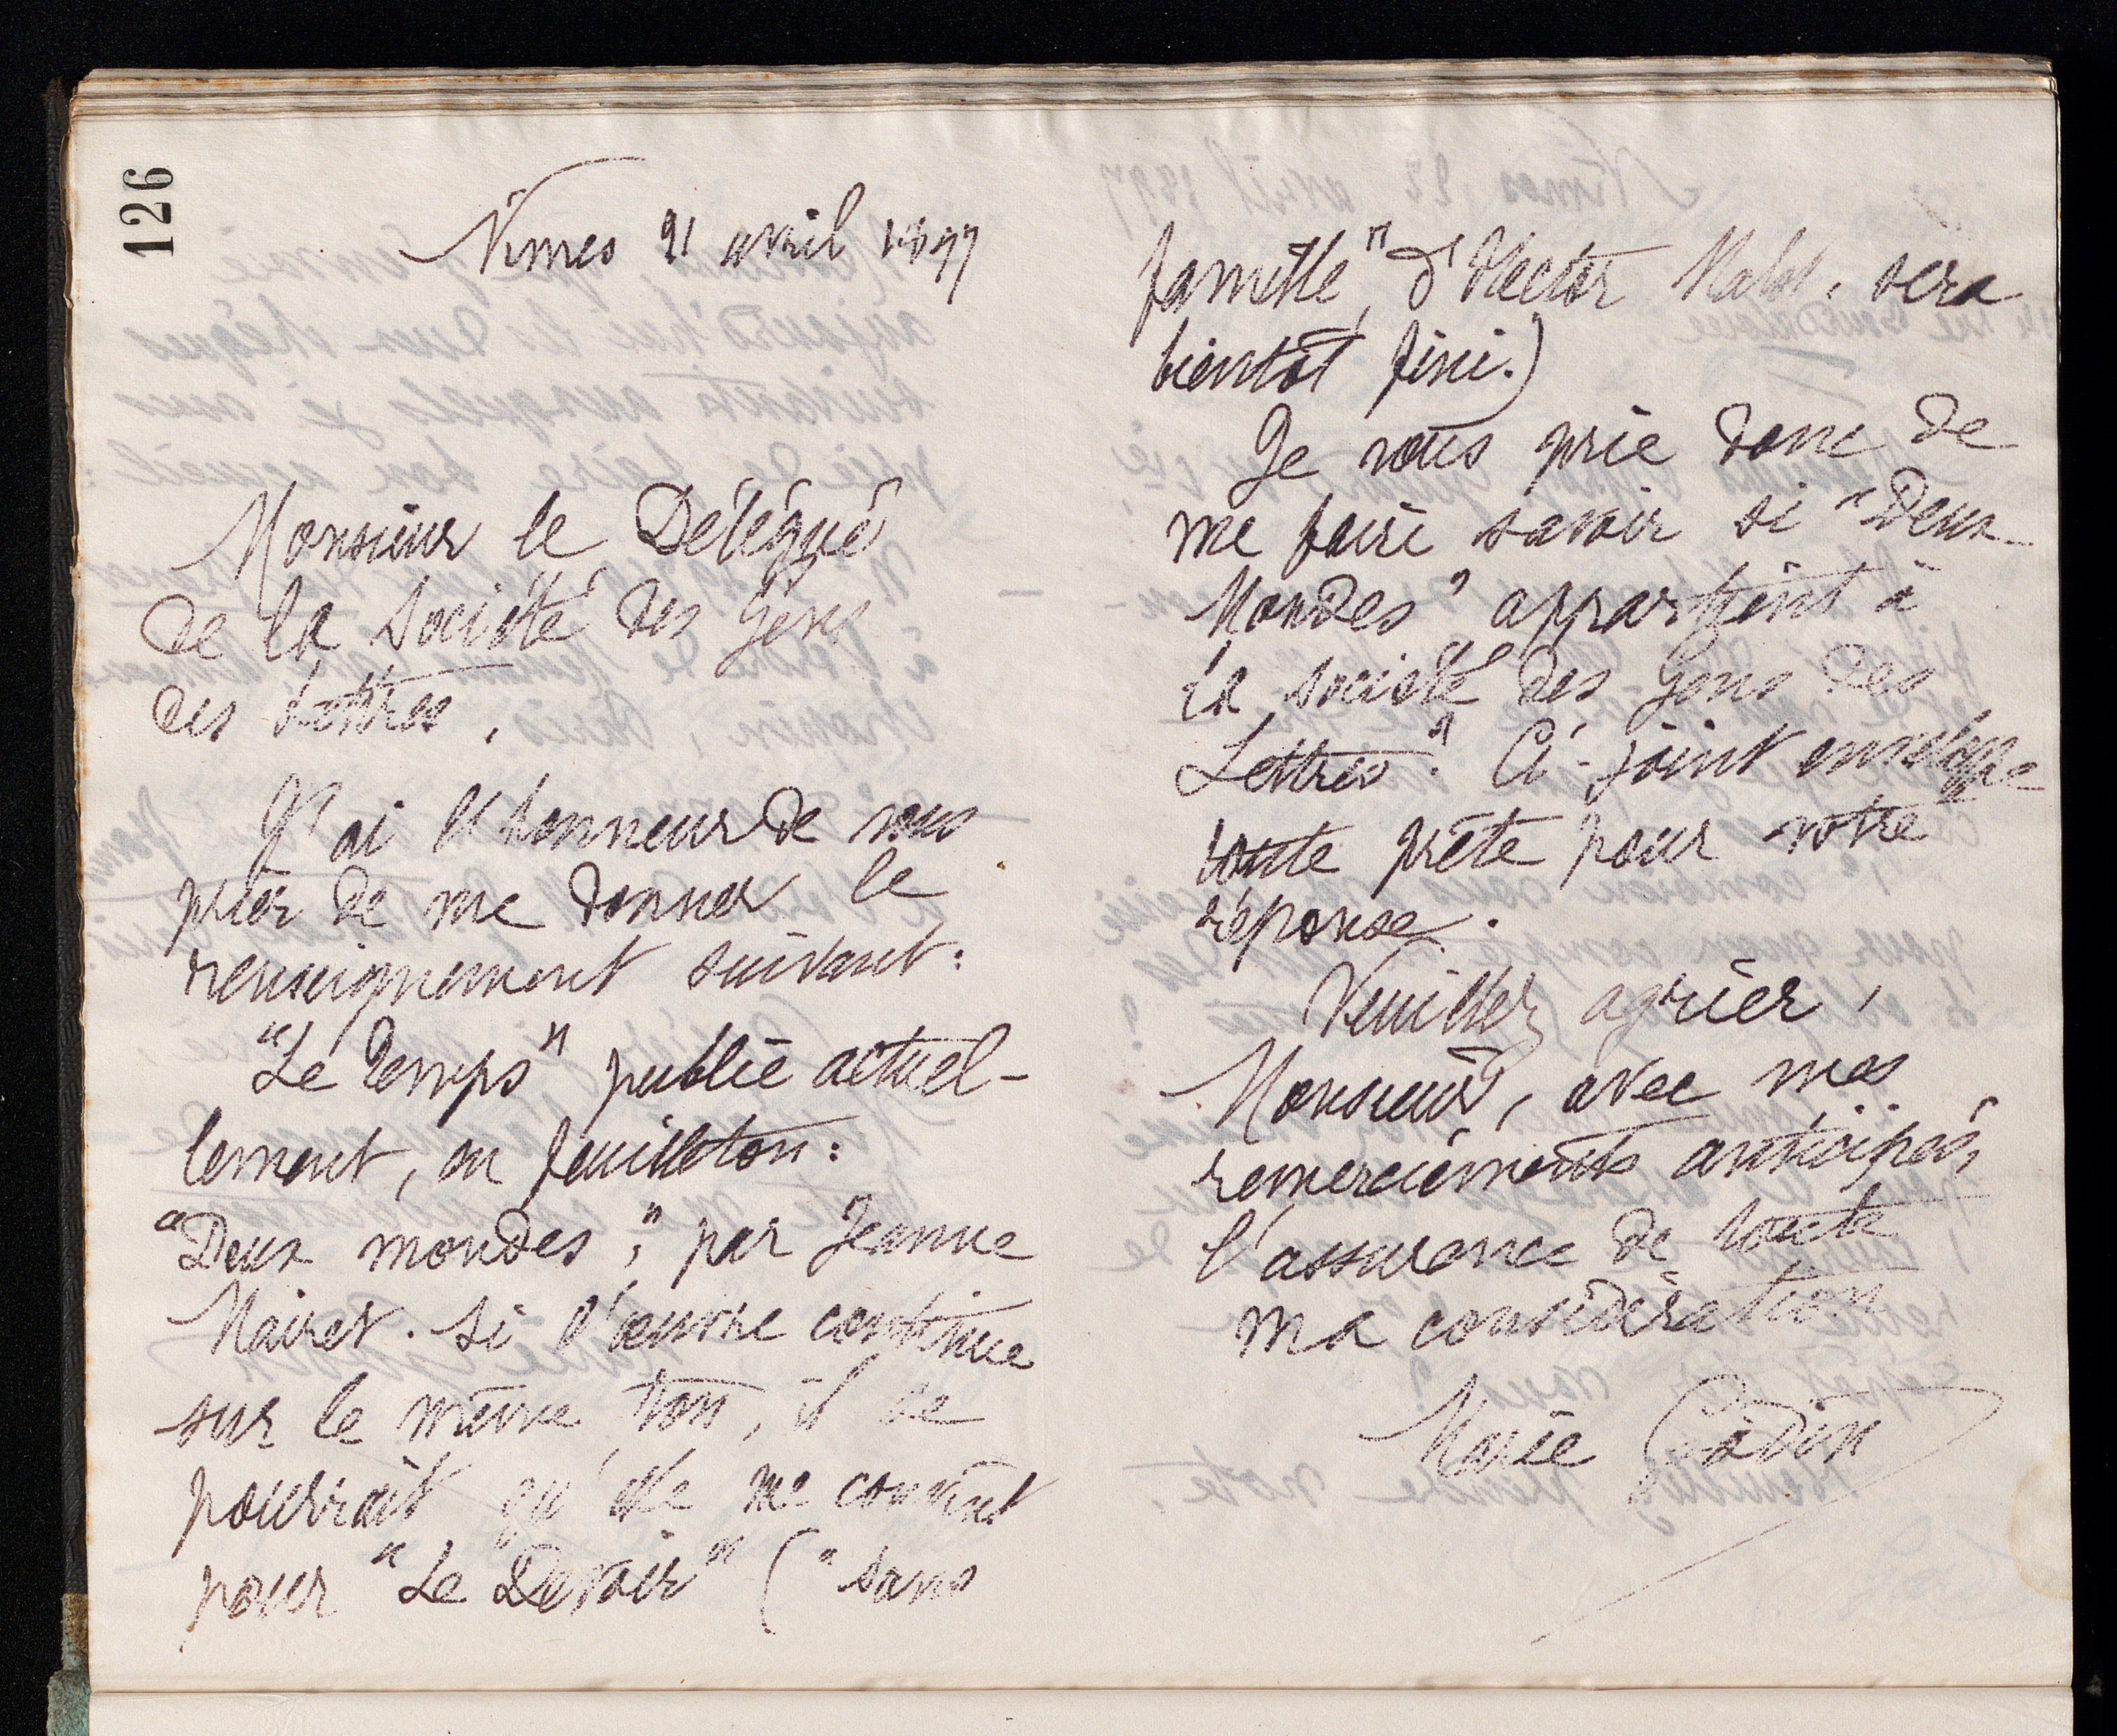 126
Nimes 21 avril 1897
Monsieur le Délégué
de la Société des Gens
des Lettres,
J'ai l'honneur de vous
prier de me donner le
renseignement suivant:
"Le Temps" publie actuel-
lement, en feuilleton:
"Deux mondes," par Jeanne
Mairet. Si l'œuvre continue
sur le même ton, il se
pourrait qu'elle me convint
pour "Le Devoir" ("Sans
famille" d'Hector Malot, sera
bientôt fini.)
Je vous prie donc de
me faire savoir si "Deux
Mondes" appartient à
la Société des Gens des
Lettres". Ci-joint enveloppe
toute prête pour votre
réponse.
Veuillez agréer,
Monsieur, avec mes
remerciements anticipés,
l'assurance de toute
ma considération
Marie Godin